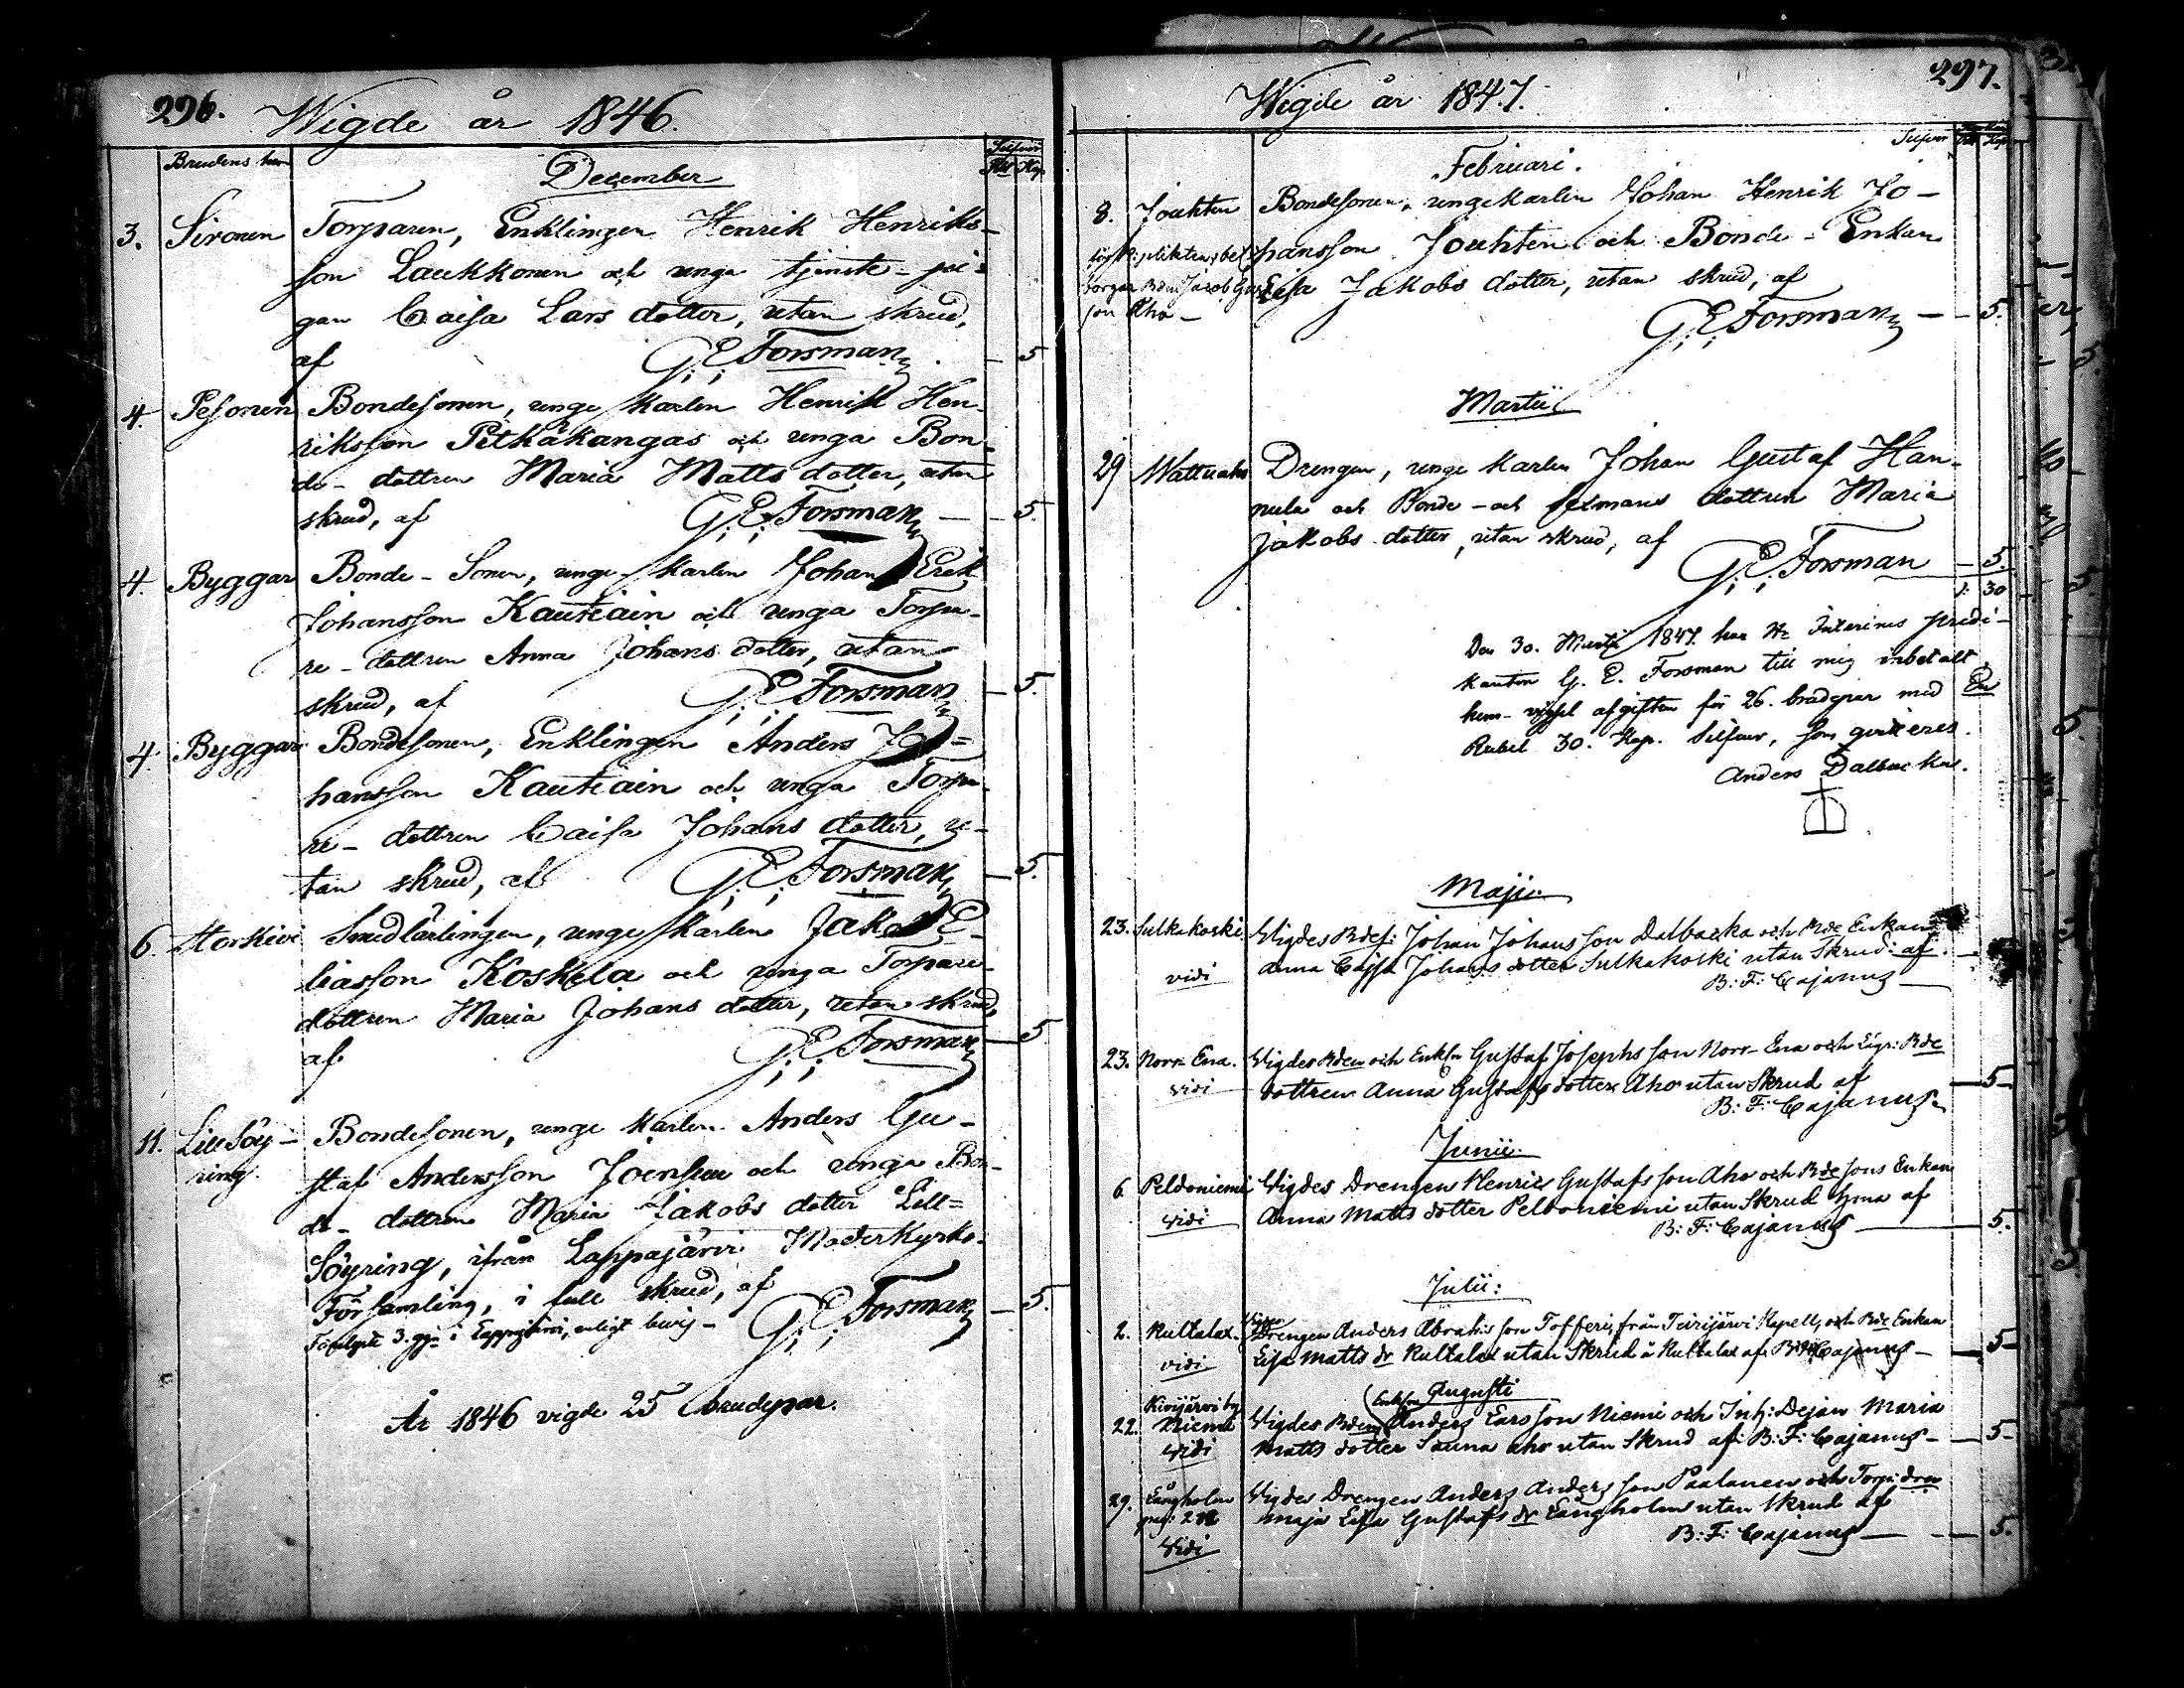 296.
Wigde år 1846.
Brudens hem
Silfver
Rub Kop.
December
3. Sironen Torparen, Enklingen Henrik Henriks-
son Laukkonen och unga tjenste-pi-
gan Caisa Lars dotter, utan skrud,
af G: E: Forsman — 5
4. Pesonen Bondesonen, unge karlen Henrik Hen-
riksson Pitkäkangas och unga Bon-
de-dottren Maria Matts dotter, utan
skrud, af G: E: Forsman — 5.
4. Byggar Bonde-Sonen, unge karlen Johan Erik
Johansson Kautiain och unga Torpa-
re-dottren Anna Johans dotter, utan
skrud, af G: E: Forsman — 5.
4. Byggar Bondesonen, Enklingen Anders Jo=
hansson Kautiain och unga Torpa-
re-dottren Caisa Johans dotter, u-
tan skrud, af G: E: Forsman — 5.
6. Storkivi Smedlärlingen, unge karlen Jakob E-
liasson Koskela och unga Torpare-
dottren Maria Johans dotter, utan skrud,
af G: E: Forsman — 5
11. Lill Söy- Bondesonen, unge karlen Anders Gu-
ring. staf Andersson Joensuu och unga Bon-
de-dottren Maria Jakobs dotter Lill=
Söyring, ifrån Lappajärvi Moderkyrko-
Församling, i full skrud, af
G: E: Forsman — 5.
3. ggr i Lappajärvi, enligt bevis —
År 1846 vigde 25 brudepar.
297.
Wigde år 1847.
Silfver
Rub Kop
Februari.
8. Jouhten Bondesonen, unge karlen Johan Henrik Jo-
hansson Jouhten och Bonde-Enkan
Eisa Jakobs dotter, utan skrud, af
son Aho —
G: E: Forsman — 5.
Martii
29 Wattuaho Drengen, unge karlen Johan Gustaf Han-
nula och Bonde- och Sexmans dottren Maria
Jakobs dotter, utan skrud, af
G: E: Forsman — 5.
1: 30
Den 30. Martii 1847. har Hr Interims predi-
kanten G. E. Forsman till mig inbetalt
hem-vigsel afgiften för 26. brudepar med En
Rubel 30. Kop. Silfver, som qvitteras.
Anders Dalbacka.
Maji:
23. Sulkakoski Vigdes Bdes: Johan Johansson Dalbacka och Bde Enkan
vidi Anna Cajsa Johans dotter Sulkakoski utan Skrud: af. —
B: F: Cajanus —
23. Norr-Ena. Vigdes Bden och Enkln Gustaf Josephsson Norr-Ena och Bde
vidi dottren Anna Gustafs dotter Aho utan Skrud af — 5-
B: F: Cajanus.
Junii:
6 Peldoniemi Vigdes Drengen Henric Gustafsson Aho och Bde sons Enkan
vidi Anna Matts dotter Peldoniemi utan Skrud hema af
B: F: Cajanus — 5.
Julii:
2. Rultalax. Vigdes Drengen Anders Abrah:s son Tofferi, från Teirijärvi Kapell, och Bde Enkan
vidi Eisa Matts dr Rultalax utan Skrud å Rultalax af B: F: Cajanus — 5-
Augusti
Kivijärvi by
22. Niemi Vigdes Bden Enkln Anders Larsson Niemi och Inh: Dejan Maria
vidi Matts dotter Sauna aho utan Skrud af: B: F: Cajanus — 5-
29. Långholm Vigdes Drengen Anders Andersson Paalanen och Torp: dren
vidi Maja Eisa Gustafs dr Långholm utan Skrud af
B: F: Cajanus — 5.